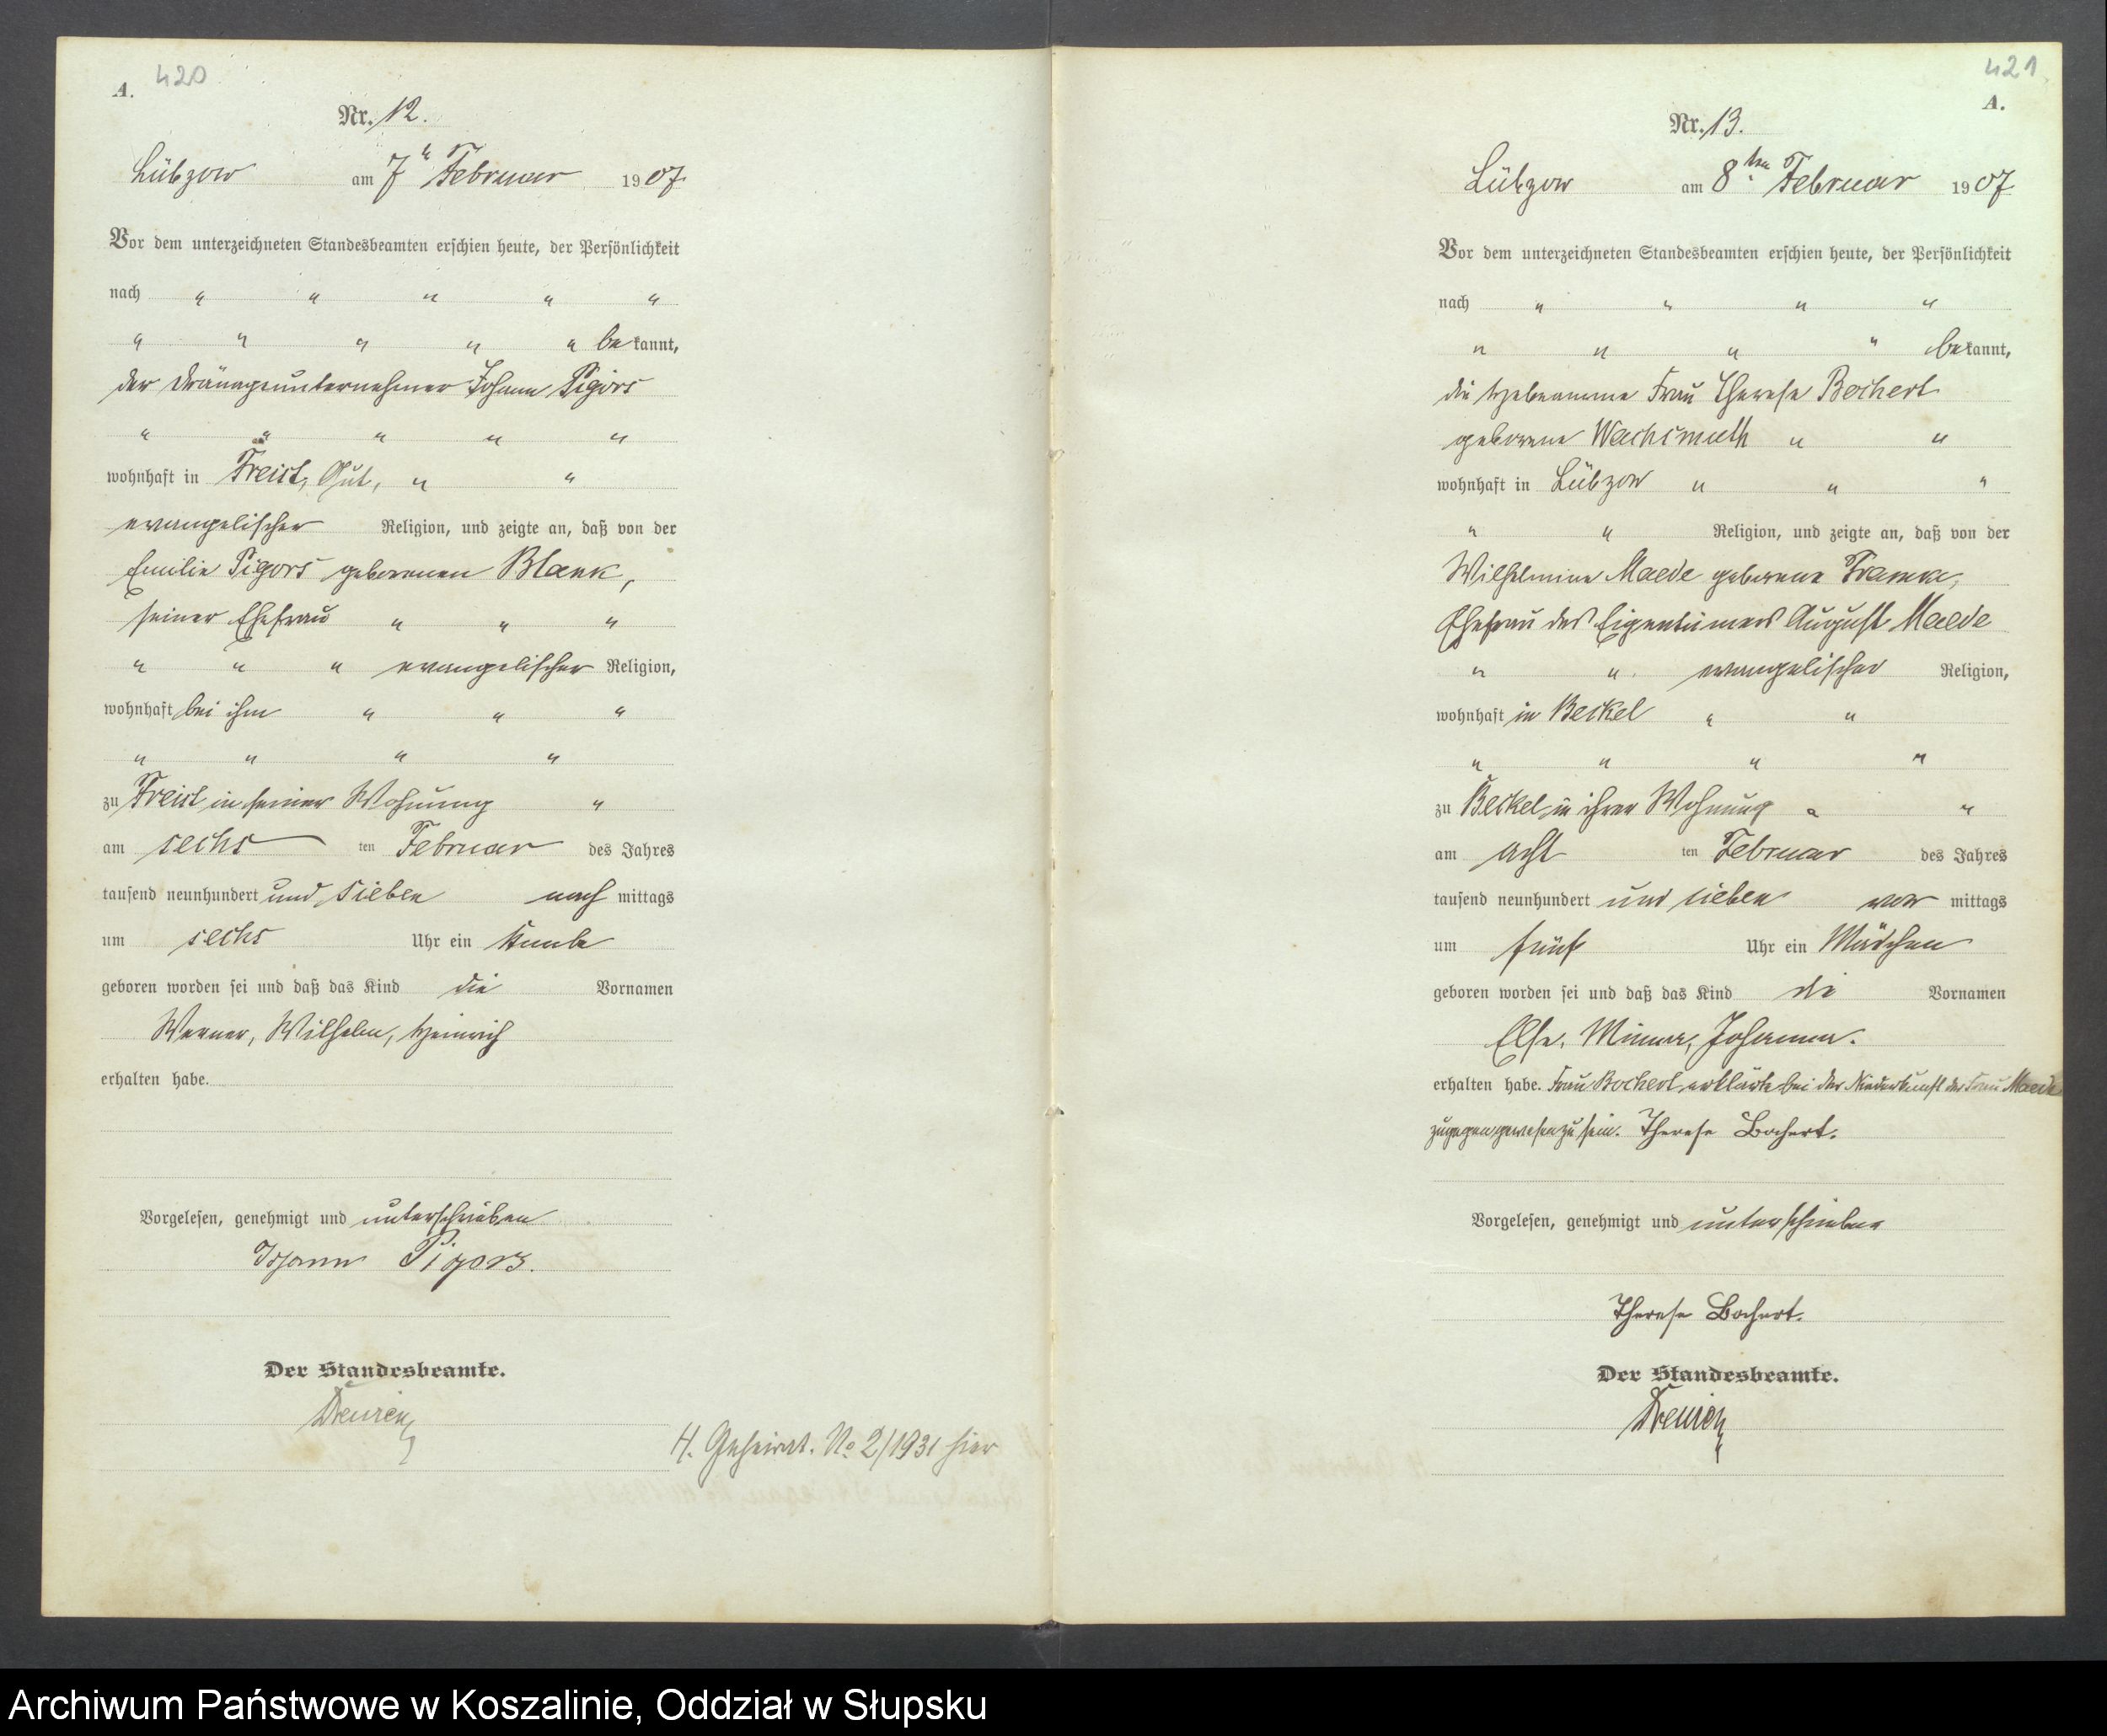 420
A.
Nr. 12.
Lübzow am 7n Februar 1907
Vor dem unterzeichneten Standesbeamten erschien heute, der Persönlichkeit
nach " " " " "
" " " " " bekannt,
der Dränageunternehmer Johann Pigors
" " " " "
wohnhaft in Freist, Gut, " "
evangelischer Religion, und zeigte an, daß von der
Emilie Pigors geborenen Blank,
seiner Ehefrau " " "
" " " evangelischer Religion,
wohnhaft bei ihm " " "
" " " "
zu Freist in seiner Wohnung "
am sechs ten Februar des Jahres
tausend neunhundert und sieben nach mittags
um sechs Uhr ein Knabe
geboren worden sei und daß das Kind die Vornamen
Werner, Wilhelm, Heinrich
erhalten habe.
Vorgelesen, genehmigt und unterschrieben
Johann Pigors.
Der Standesbeamte.
H. Geheirat. No 2/1931 hier
421
A.
Nr. 13.
Lübzow am 8ten Februar 1907
Vor dem unterzeichneten Standesbeamten erschien heute, der Persönlichkeit
nach " " " "
" " " " bekannt,
die Hebeamme Frau Therese Bochert
geborene Wachsmuth " "
wohnhaft in Lübzow " " "
" " Religion, und zeigte an, daß von der
Wilhelmine Maede geborene
Ehefrau des Eigentümers August Maede
" " evangelischer Religion,
wohnhaft in Beckel " "
" " " "
zu Beckel in ihrer Wohnung " "
am acht ten Februar des Jahres
tausend neunhundert und sieben vor mittags
um fünf Uhr ein Mädchen
geboren worden sei und daß das Kind die Vornamen
Else, Minna, Johanna.
erhalten habe. Frau Bochert erklärte bei der Niederkunft der Frau Maede
zugegen gewesen zu sein. Therese Bochert.
Vorgelesen, genehmigt und unterschrieben
Therese Bochert.
Der Standesbeamte.
Archiwum Państwowe w Koszalinie, Oddział w Słupsku